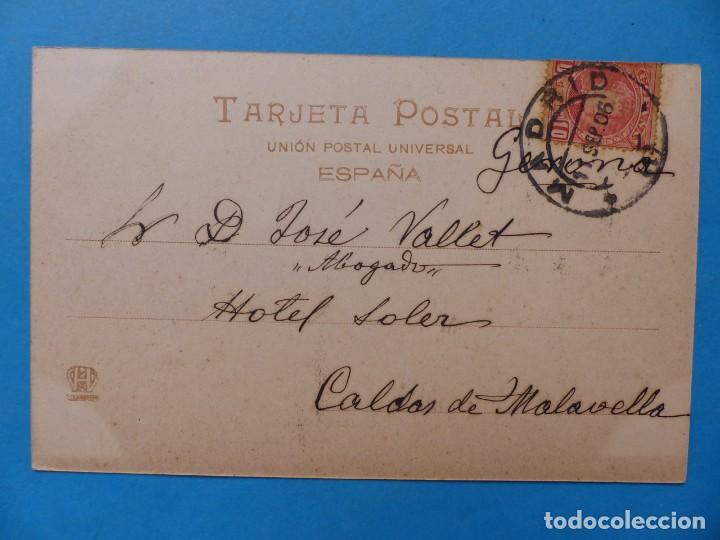 TARJETA POSTAL
UNIÓN POSTAL UNIVERSAL
ESPAÑA
Gerona
Sr D José Vallet
„Abogado„
Hotel Soler
Caldas de Malavella
MADRID
SEP 06
todocoleccion
todocoleccion.net